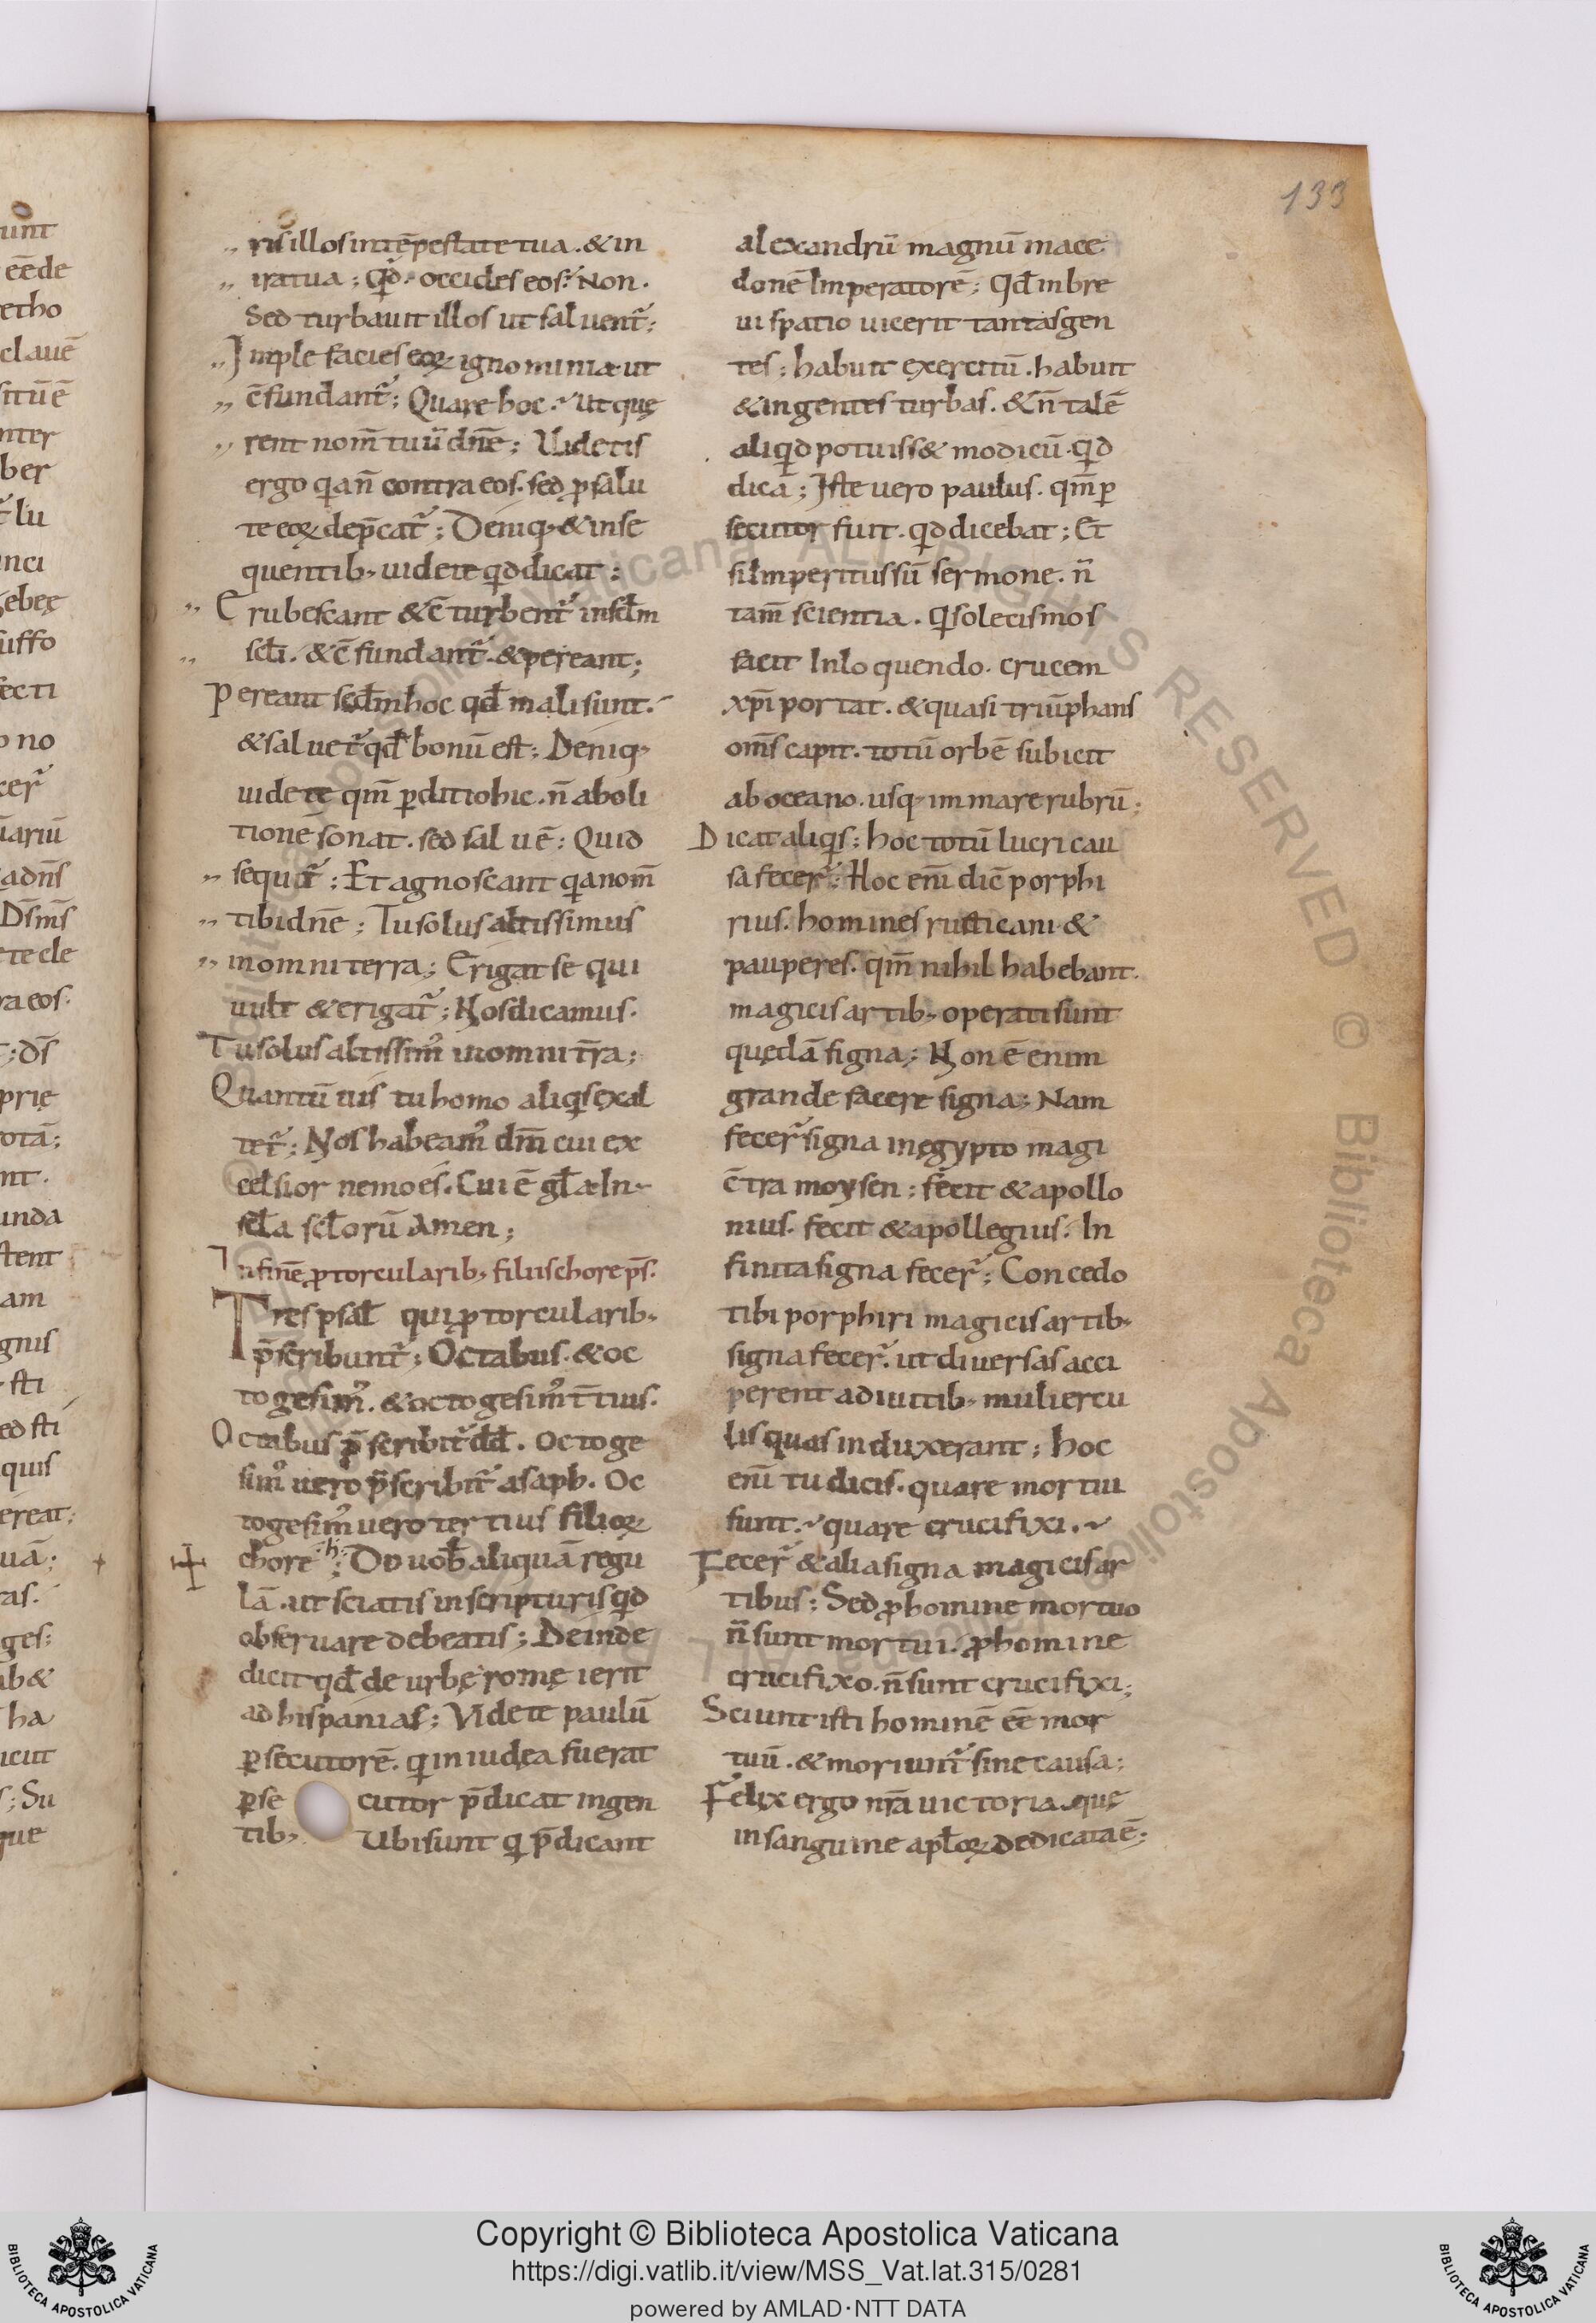 133
ris illos in tēpestate tua . & in
ira tua ; Qd̄ . occides eos ? Non .
Sed turbauit illos ut saluent᷑ ;
Imple facies eoꝝ ignominia ut
c̄fundant᷑ ; Quare hoc ? ut quę
rent nom̄ tuū dn̄e ; Uidetis
ergo qia n̄ contra eos . sed ꝓ salu
te eoꝝ dep̄cat᷑ ; Deniq; & in se
quentib; uidete qid dicat ;
Erubescant & c̄turbent᷑ in sclm̄
scli . & c̄fundant᷑ . & pereant ;
Pereant scdm̄ hoc qd̄ mali sunt .
& saluet᷑ qd̄ bonū est ; Deniq;
uidete qm̄ ꝑditio hic . n̄ aboli
tionē sonat . sed salutē ; Quid
sequit᷑ ; Et agnoscant qia nom̄
tibi dn̄e ; Tu solus altissimus
in omni terra ; Erigat se qui
uult & erigat᷑ ; Nos dicamus .
Tu solus altissim᷒ in omni t̄ra ;
Quantū uis tu homo aliqis exal
tet᷑ ; Nos habeam᷒ dm̄ cui ex
celsior nemo ē . Cui ē gl̄a In
scl̄a scl̄orū Amen ;
In finē ꝓ torcularib; filiis chore ps̄ .
Tres psal̄ qui ꝓ torcularib;
p̄scribunt᷑ ; Octabus . & oc
togesim᷒ . & octogesim᷒ t̄tius .
Octabus p̄scribit᷑ dd̄ . Octoge
sim᷒ uero p̄scribit᷑ asaph . Oc
togesim᷒ uero tertius filioꝝ
chore ; Do uob̄ aliquā regu
lā . ut sciatis in scripturis qid
obseruare debeatis ; Deinde
dicit qd̄ de urbę romę ierit
ad hispanias ; Videte paulū
ꝑsecutorē . qi in iudea fuerat
ꝑse cutor p̄dicat in gen
tib; Ubi sunt qi p̄dicant
alexandrū magnū mace
donē Imperatorē ; Qd̄ in bre
ui spatio uicerit tantas gen
tes ; habuit exercitū . habuit
& ingentes turbas . & n̄ talē
aliqid potuiss& modicū . qid
dicā ; Iste uero paulus . qm̄ ꝑ
secutor fuit . qid dicebat ; Et
si Imperitus sū sermone . n̄
tam̄ scientia . Qi solecismos
facit In loquendo . crucem
xp̄i portat . & quasi triūphans
om̄s capit . totū orbē subicit
ab oceano . usq; im mare rubrū ;
Dicat aliqis ; hoc totū lucri cau
sa fecer᷑ ; Hoc eni᷒ dic̄ porphi
rius . homines rusticani &
pauperes . qm̄ nihil habebant .
magicis artib; operati sunt
quędā signa ; Non ē enim
grande facere signa ; Nam
fecer᷑ signa in ęgypto magi
c̄tra moysen ; fecit & apollo
nius . fecit & apollegius . In
finita signa fecer᷑ ; Concedo
tibi porphiri magicis artib;
signa fecer᷑ . ut diuersas acci
perent a diuitib; muliercu
lis quas induxerant ; hoc
eni᷒ tu dicis . quare mortui
sunt ? quare crucifixi ?
Fecer᷑ & alia signa magicis ar
tibus ; Sed ꝓ homine mortuo
n̄ sunt mortui . ꝓ homine
crucifixo . n̄ sunt crucifixi ;
Sciunt isti hominē ēē mor
tuū . & moriunt᷑ sine causa ;
Felix ergo nr̄a uictoria . que
in sanguine apl̄oꝝ dedicata ē ;
Copyright © Biblioteca Apostolica Vaticana
https://digi.vatlib.it/view/MSS_Vat.lat.315/0281
powered by AMLAD·NTT DATA